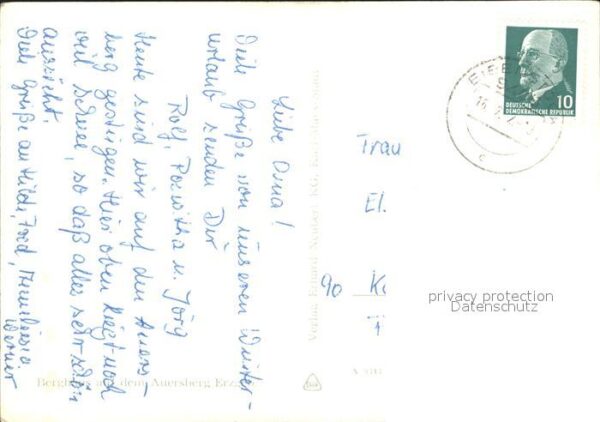 Liebe Oma!
Viele Grüße von unserem Winter-
urlaub senden Dir
Rolf, Roswitha u. Jörg
Heute sind wir auf den Auers-
berg gestiegen. Hier oben liegt noch
viel Schnee, so daß alles sehr schön
aussieht.
Viele Grüße an Hilde, Fred,
Werner
Berghaus auf dem Auersberg Erzgeb.
Verlag Erhard Neubert KG,
DEUTSCHE
DEMOKRATISCHE REPUBLIK
10
Frau
El.
90 K
privacy protection
Datenschutz